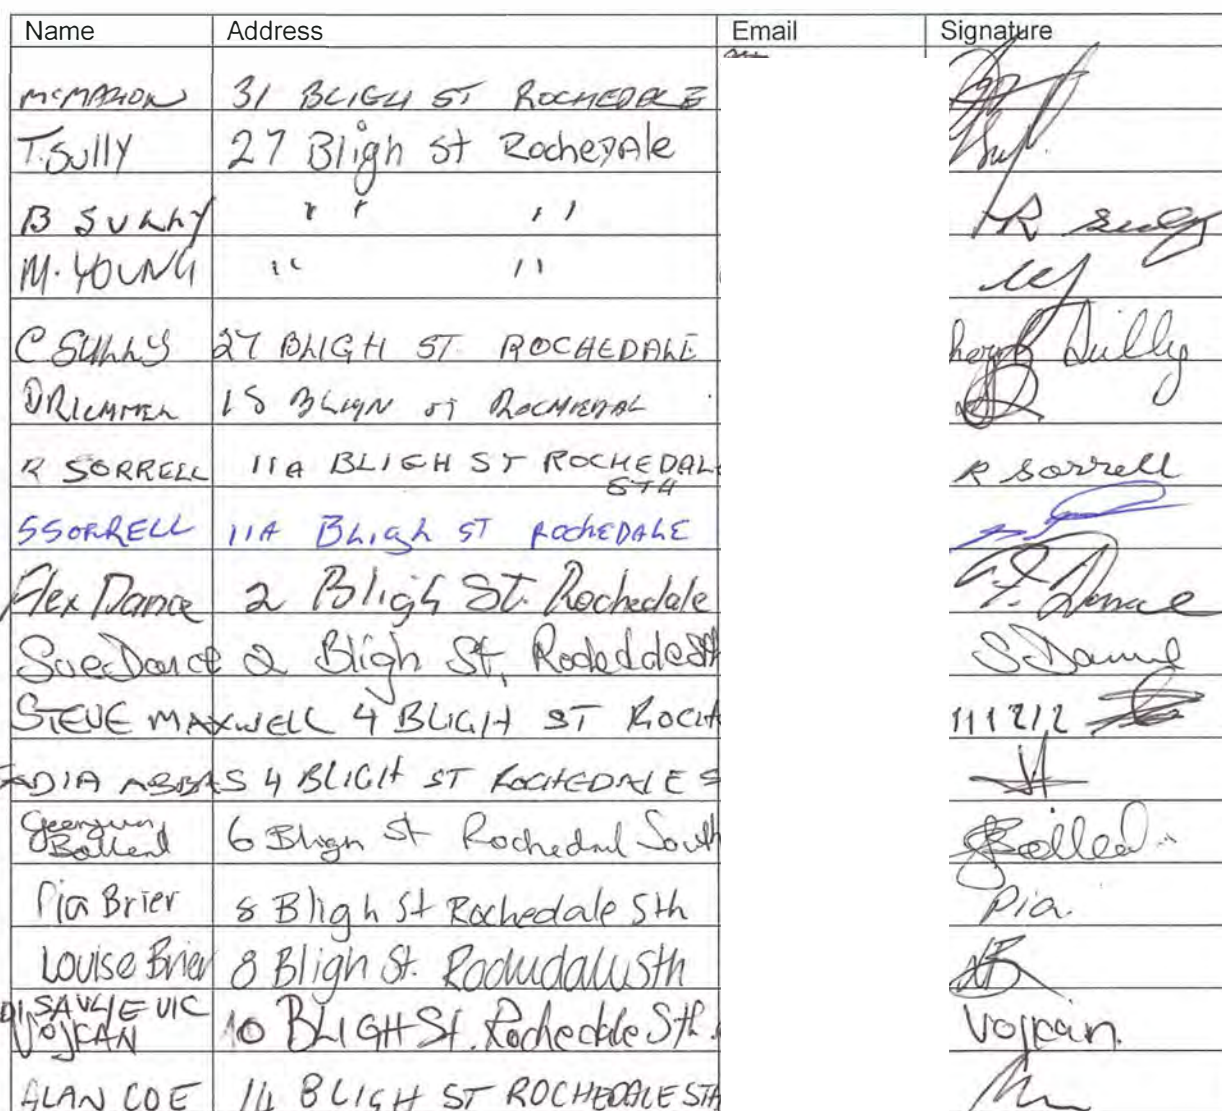 Name Address Email Signature
McMAHON 31 BLIGH ST ROCHEDALE
T. Sully 27 Bligh st RocheDAle
B SULLY " " " R Sully
M. YOUNG " " MY
C SULLY 27 BLIGH ST. ROCHEDALE heryl Sully
15 BLIGH ST
R SORRELL 11A BLIGH ST ROCHEDALE R Sorrell
STH
S SORRELL 11A BLigh ST ROCHEDALE
Alex Dance 2 Bligh St. Rochedale Dance
Sue Dance 2 Bligh St, S Dance
STEVE MAXWELL 4 BLIGH ST ROCH 111212
ADIA ABBAS 4 BLIGH ST ROCHEDALE S
6 Bligh St Rochedal South
Ballard
Pia Brier 8 Bligh St Rochedale Sth Pia.
Louise Brier 8 Bligh St. Rochedale Sth LB
DISAVLJEVIC
VOJKAN 10 BLIGH St. Rochedale Sth. Vojkan.
ALAN COE 14 BLIGH ST ROCHEDALE STH